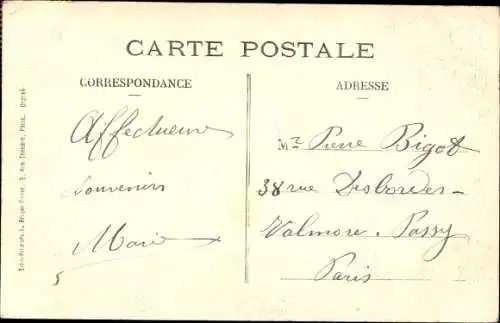 CARTE POSTALE
CORRESPONDANCE
ADRESSE
Affectueux
Souvenirs
Marie
5
Mr Pierre Bigot
38 rue Desbordes-
Valmore. Passy
Paris